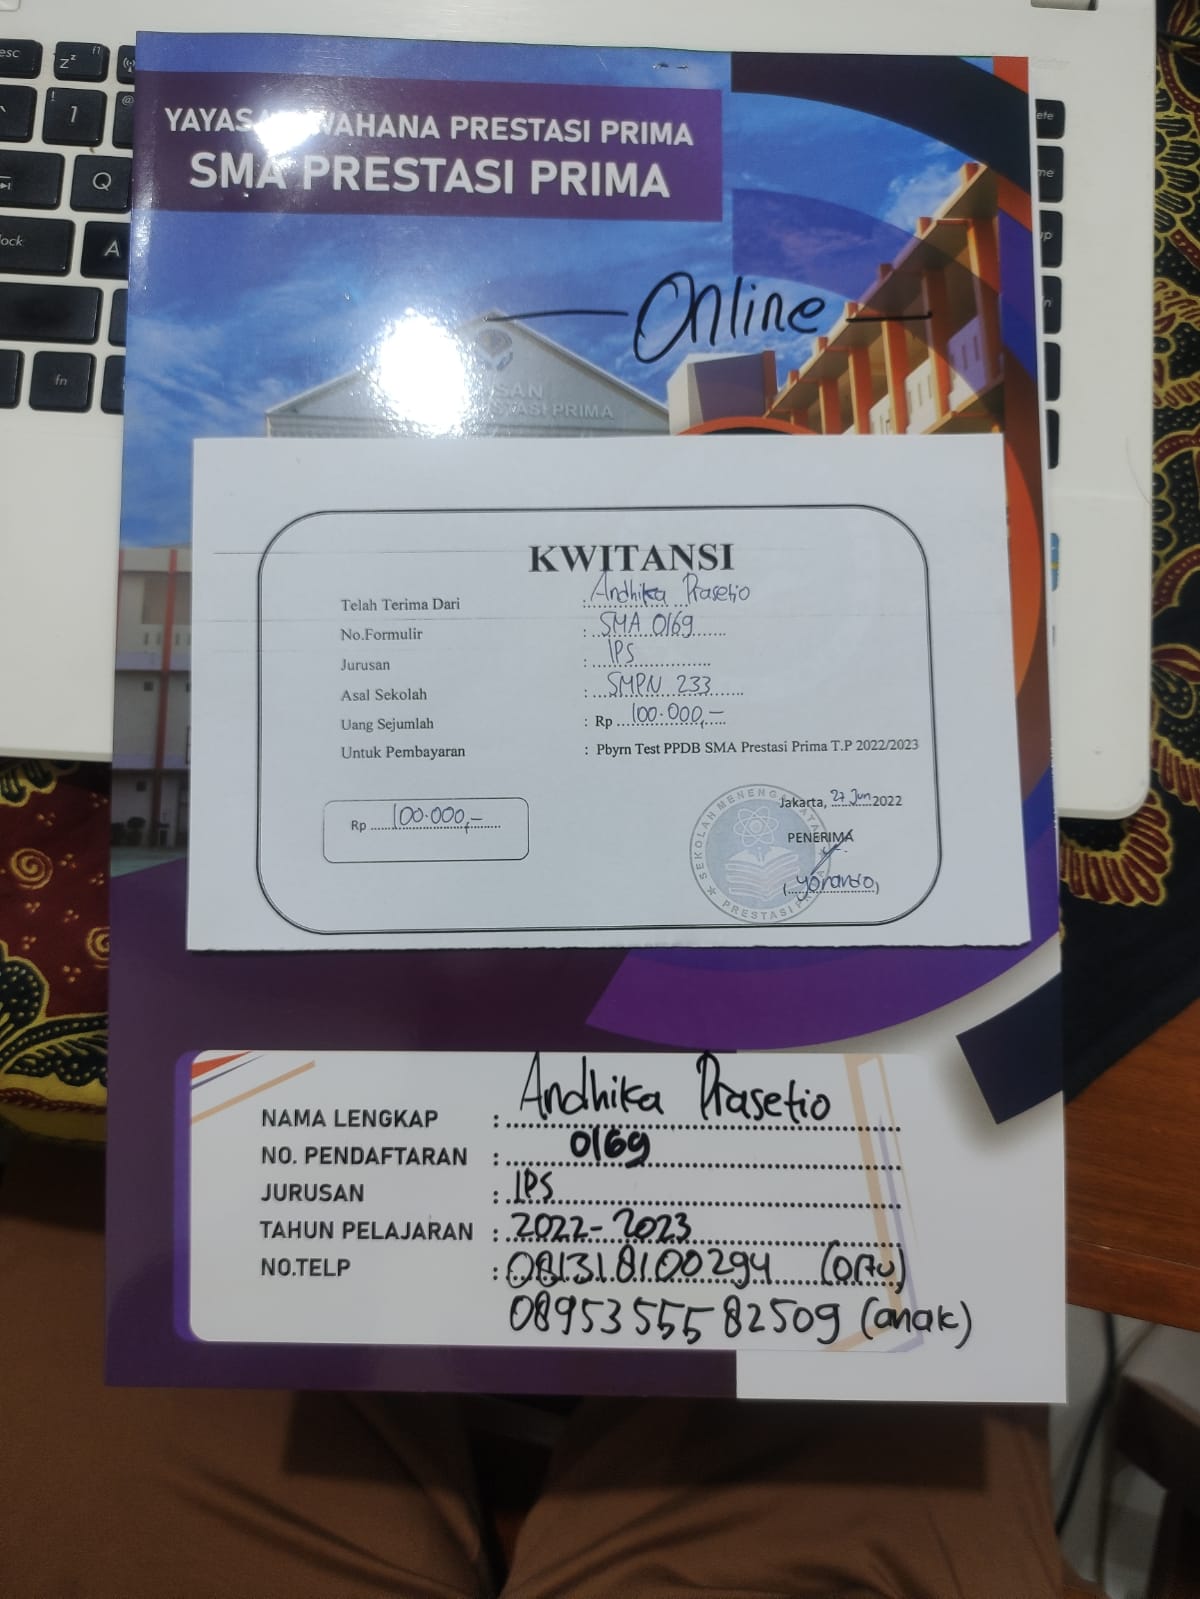 esc
f1
zᶻ
1
@
Q
lock
A
fn
YAYASA WAHANA PRESTASI PRIMA
SMA PRESTASI PRIMA
Online
SAN
STASI PRIMA
KWITANSI
Telah Terima Dari : Andhika Prasetio
No.Formulir : SMA 0169
Jurusan : IPS
Asal Sekolah : SMPN 233
Uang Sejumlah : Rp 100.000,-
Untuk Pembayaran : Pbyrn Test PPDB SMA Prestasi Prima T.P 2022/2023
Rp 100.000,-
Jakarta, 27 Jun 2022
PENERIMA
SEKOLAH MENENG ATA
PRESTASI P
NAMA LENGKAP : Andhika Prasetio
NO. PENDAFTARAN : 0169
JURUSAN : IPS
TAHUN PELAJARAN : 2022-2023
NO.TELP : 081318100294
0895355582509 (anak)